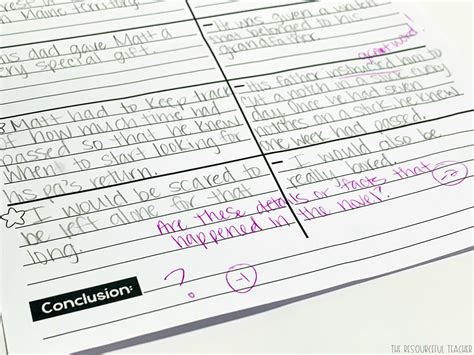 in Maine territory.
his dad gave Matt a
very special gift.
- He was given a watch
that belonged to his
grandfather.
great word!
Matt had to keep track
of how much time had
passed so that he knew
when to start looking for
his pa's return.
- His father instructed him to
cut a notch in a stick every
day. Once he had seven
notches on a stick he knew
one week had passed.
I would be scared to
be left alone for that
long.
- I would also be
really bored.
Are these details or facts that
happened in the novel?
Conclusion:
?
-1
THE RESOURCEFUL TEACHER